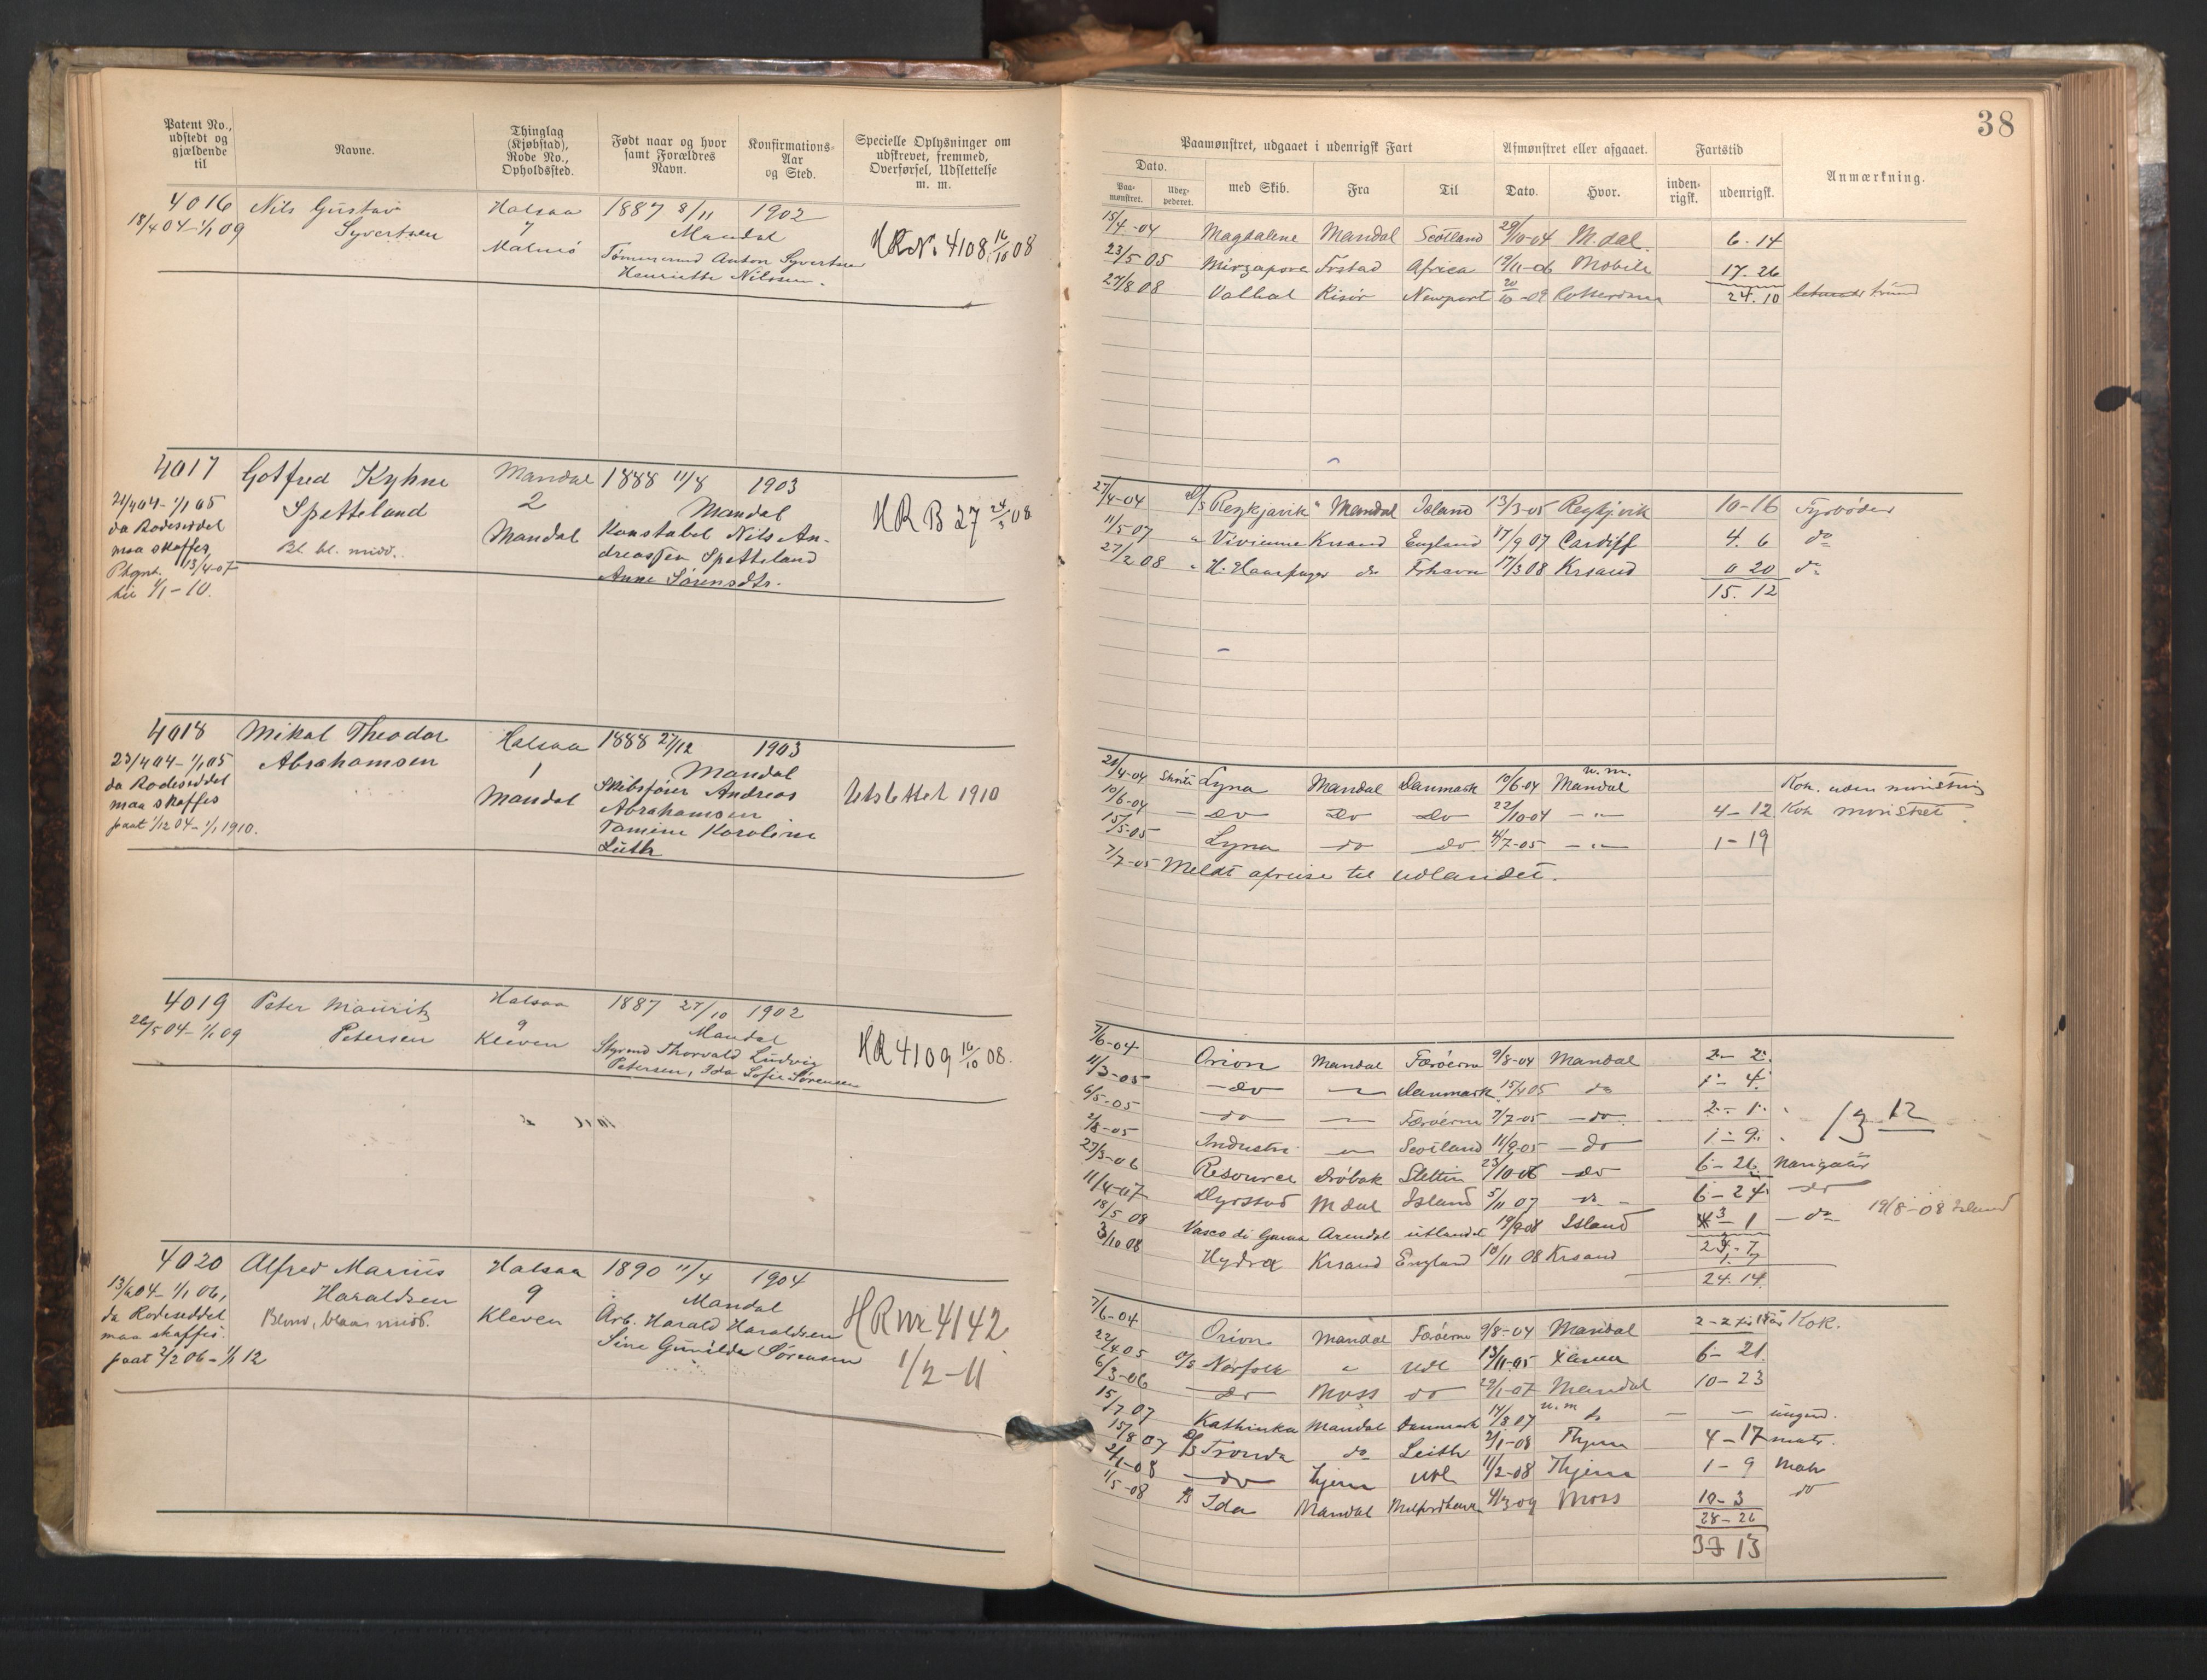 38
Patent No., udstedt og gjældende til
Navne.
Thinglag (Kjøbstad), Rode No., Opholdssted.
Født naar og hvor samt Forældres Navn.
Konfirmations-Aar og Sted.
Specielle Oplysninger om udskrevet, fremmed, Overførsel, Udslettelse m. m.
Paamønstret, udgaaet i udenrigsk Fart
Afmønstret eller afgaaet.
Fartstid
Anmærkning.
Dato.
Paa-mønstret.
Udex-pederet.
med Skib.
Fra
Til
Dato.
Hvor.
inden-rigsk.
udenrigsk.
4016 Nils Gustav Halsaa 1887 8/11 1902
18/4 04-1/1 09 Syvertsen 7 Mandal
Malmø Tømmermd Anton Syvertsen
Henriette Nilssen.
HR No 4108 16/10 08
15/4-04 Magdalene Mandal Scotland 29/10-04 M.dal. 6-14
23/5 05 Mirzapore Frstad Africa 19/11-06 Mobile 17.26
27/8 08 Valhal Risør Newport 20/10-09 24.10
4017 Gotfred Kyhne Mandal 1888 11/8 1903
21/4 04-1/1 05 Spetteland 2 Mandal
da Rodeseddel Mandal Konstabel Nils An-
maa skaffes, Bl. bl. midd. dreassen Spetteland
Phgnt. 13/4-07 Anne Sørensdtr.
til 1/1-10.
HR B 27 24/3 08
27/4-04 D/S Reykjavik " Mandal Island 13/3-05 Reykjvik 10-16 Fyrbøder
11/5-07 " Vivienne Krsand England 17/9 07 Cardiff 4. 6 do
27/2 08 " H. Haarfager do Frhavn 17/3 08 Krsand 0 20 do
15. 12
4018 Mikal Theodor Halsaa 1888 27/12 1903
23/4 04-1/1 05 Abrahamsen 1 Mandal
da Rodeseddel Mandal Skibsfører Andreas
maa skaffes Abrahamsen
paat 1/12 04-1/1 1910. Tamine Karoline
Lüth
Utslettet 1910
21/4-04 Lyna Mandal Danmark 10/6-04 u.m. Mandal Kok. uden mønstring
10/6-04 - do do do 22/10-04 - " - 4-12 Kok mønstret.
15/5-05 Lyna do do 4/7-05 - " - 1-19
7/7-05 Meldt afreise til udlandet.
4019 Peter Mauritz Halsaa 1887 27/10 1902
26/5 04-1/1 09 Petersen 9 Mandal
Kleven Styrmd Thorvald Ludvig
Petersen, Ida Sofie Sørensen
HR 4109 16/10 08.
7/6-04 Orion Mandal Færøerne 9/8-04 Mandal 2- 2.
11/3-05 - do - " Danmark 15/4 05 do 1- 4.
6/5-05 do - " Færøerne 7/7-05 - do 2- 1.
2/8-05 Industri - " Scotland 11/9-05 - do 1- 9. 13 12
27/3-06 Resource Drøbak Stettin 23/10-06 - do 6-26 Navigatør
11/4-07 Dyrstad Mdal Island 5/11 07 do - 6-24 do
18/5 08 Vasco di Gama Arendal utlandet 19/8-08 Island 3-1 - do 19/8-08 Island
3/10 08 Hydra Krsand England 10/11 08 Krsand
24.14
4020 Alfred Marius Halsaa 1890 11/4 1904
13/6 04-1/1 06, Haraldsen 9 Mandal
da Rodeseddel Blond, blaa, midd. Kleven Arb. Harald Haraldsen
maa skaffes. Sine Gunilda Sørensen
paat 2/2 06-1/1 12
HR nr 4142
1/2-11
7/6-04 Orion Mandal Færøerne 9/8-04 Mandal 2-2 Kok.
22/4 05 D/S Norfolk " Udl 13/11-05 6- 21
6/3-06 - do Moss do 29/1-07 Mandal 10-23
15/7 07 Kathinka Mandal Danmark 14/8 07 u.m do - - ungmd.
15/8 07 D/S Tronda do Leith 2/1-08 Thjem 4-17 matr.
2/1-08 - do hjem Udl 11/2-08 Thjem 1-9 Matr
1/5-08 D/S Ida Mandal Milfordhaven 4/3 09 Moss 10-3 do
28-26
33 13